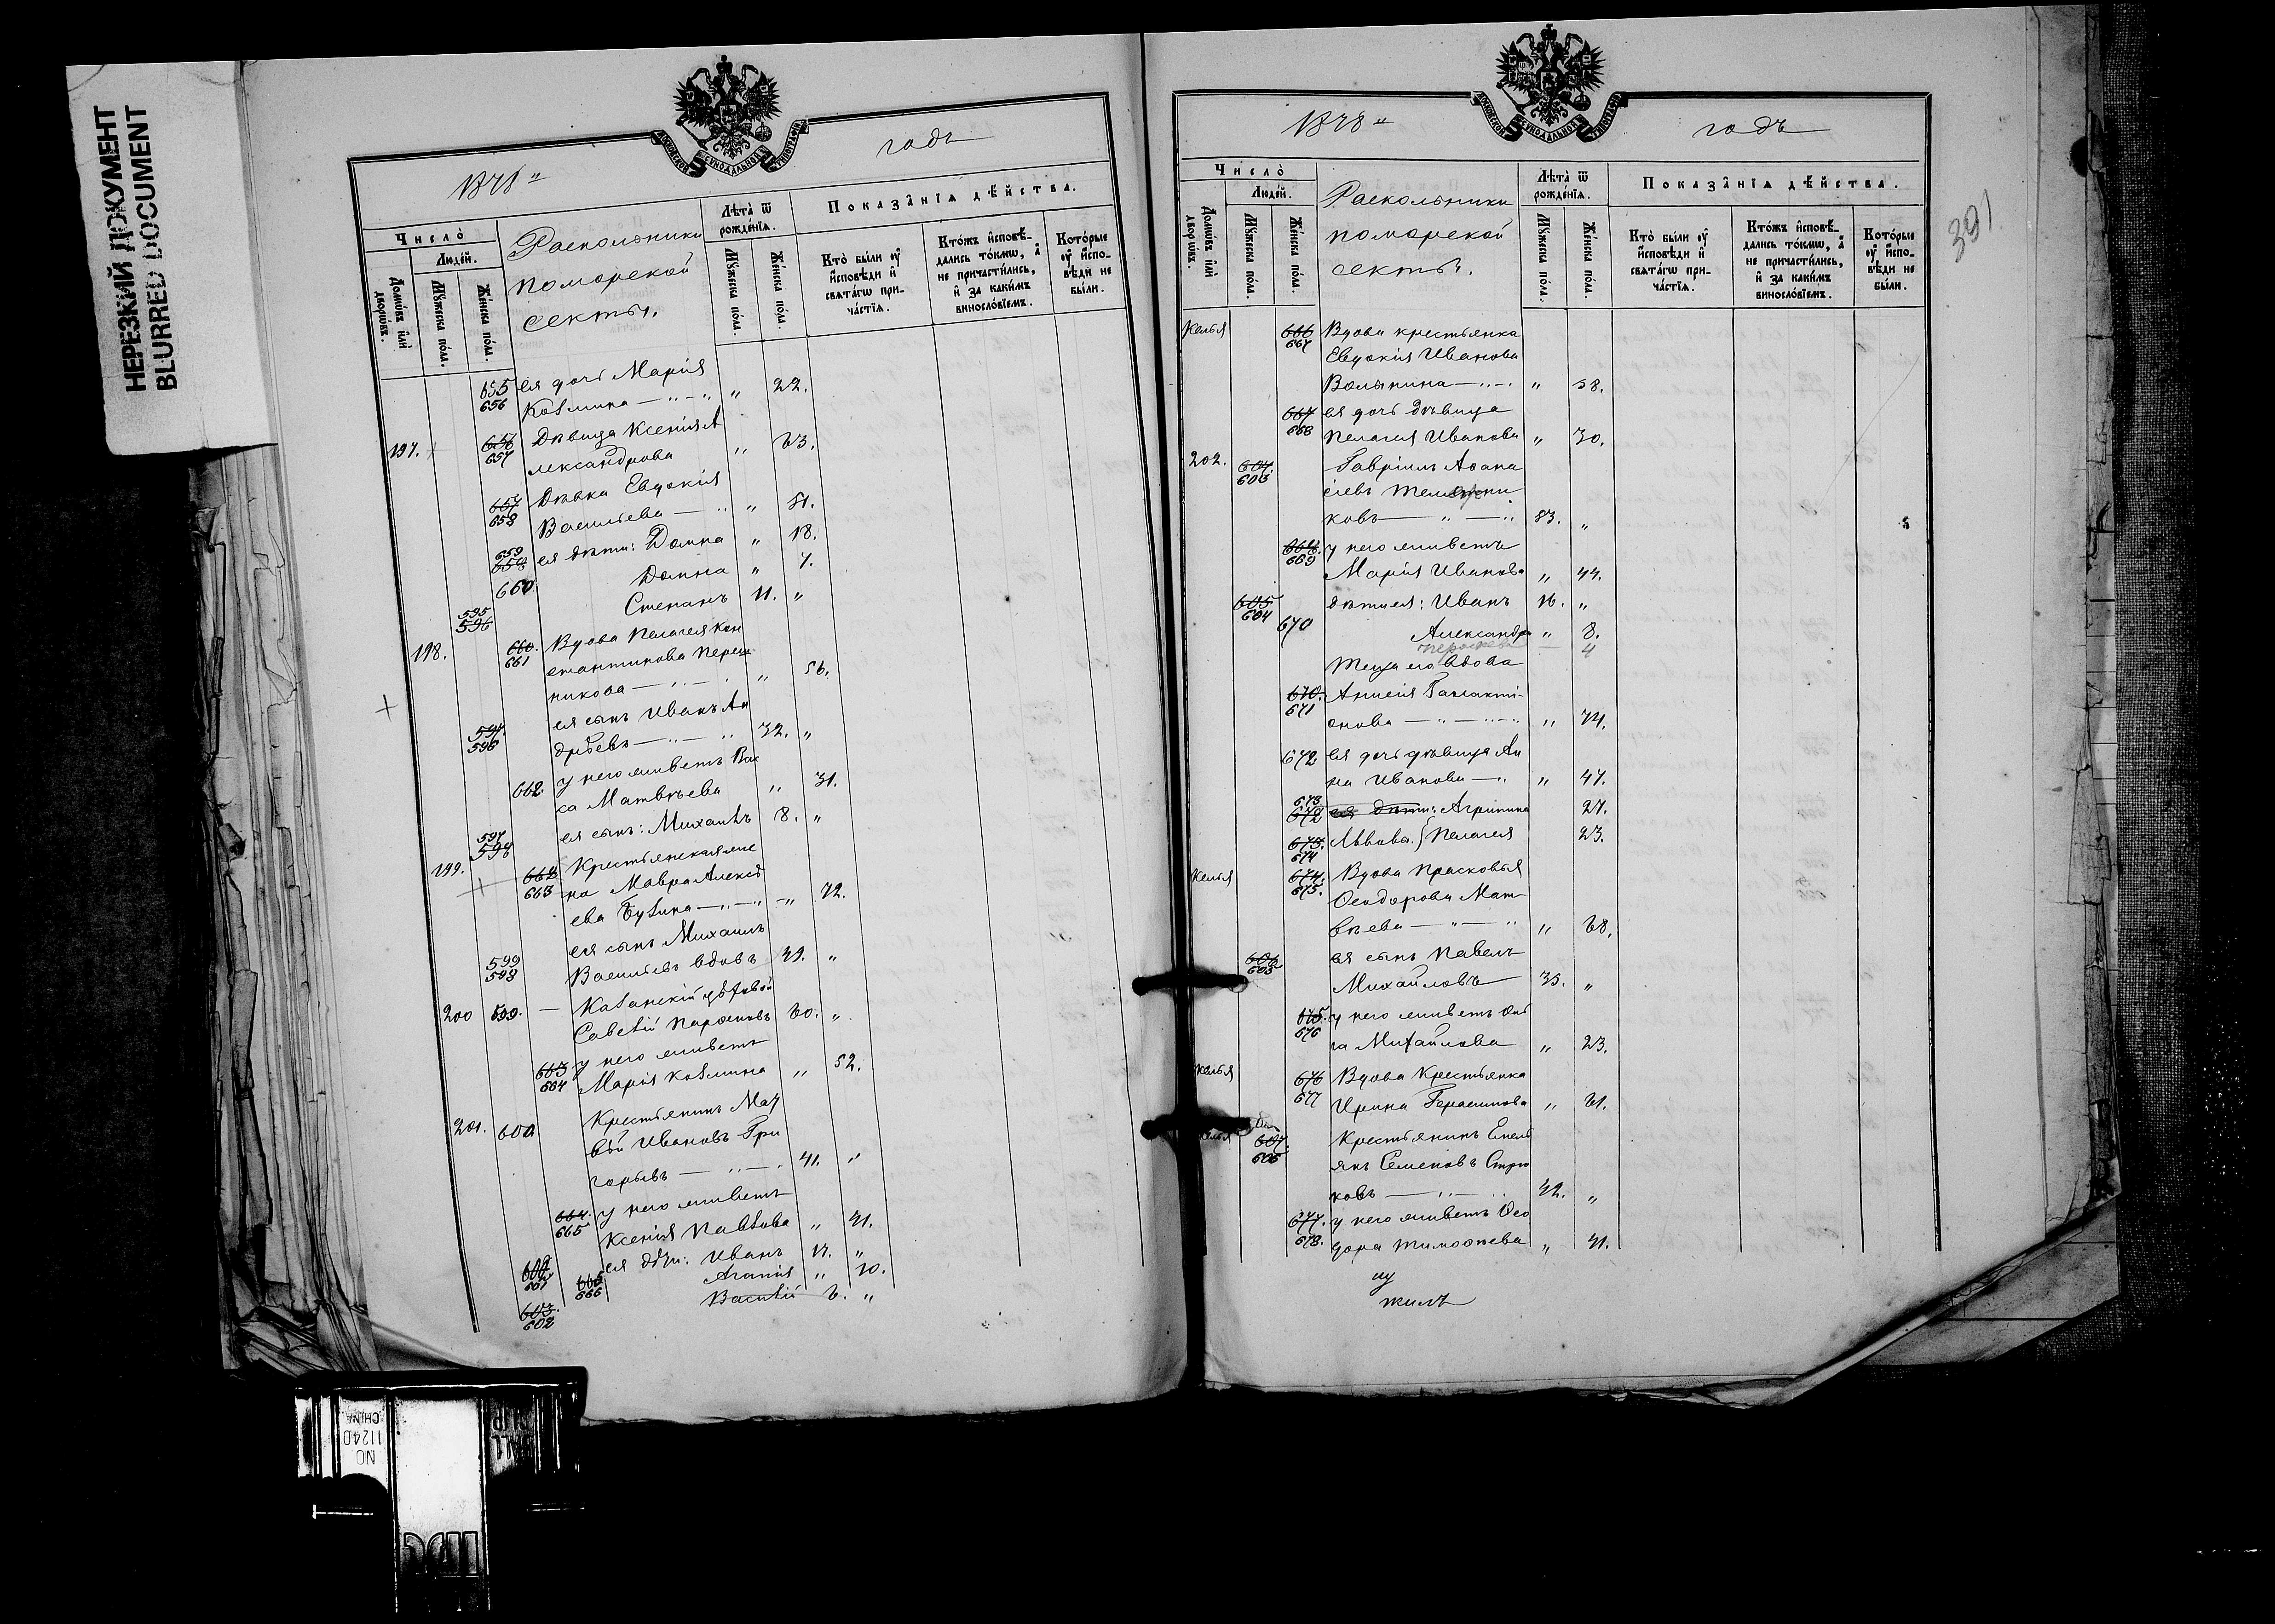 НЕРЕЗКИЙ ДОКУМЕНТ
BLURRED DOCUMENT
МОСКОВСКОЙ СУНОДАЛЬНОЙ ТИПОГРАФIИ
1878 годъ
Число̀
Люде́й.
Домѡ́въ и҆лѝ дворѡ́въ.
Мꙋ́жеска по́ла.
Же́нска по́ла.
Раскольники
поморской
секты.
Лѣ́та ѿ рожде́нїѧ.
Мꙋ́жеска по́ла.
Же́нска по́ла.
Показа̂нїѧ дѣ́йства.
Кто̀ бы́ли ᲂу҆ и҆сповѣди и҆ свѧта́гѡ причастїѧ.
Кто́жъ и҆сповѣ́дались то́кмѡ, а҆ не причасти́лись, и҆ за каки́мъ виносло́вїемъ.
Кото́рые ᲂу҆ и҆сповѣди не бы́ли.
655 656 ея дочь Марія
Козмина — " — " " 22.
197. 656 657 Дѣвица Ксенія А
лександрова " 63.
657 658 Дѣвка Евдокія
Васильева — " " 51.
659 658 ея дѣти: Домна " 18.
660 Домна " 7.
595 596 Степанъ 11. "
198. 660. 661 Вдова Пелагея Кон
стантинова
никова — " — " " 56.
597 596 ея сынъ Иванъ Ан
дрѣевъ — " — " 32. "
662 у него живетъ Вас
са Матвѣева " 31.
597 598 ея сынъ: Михаилъ 8. "
199. 662 663 Крестьянская же
на Мавра Алексѣ
ева Бузина — " — " " 72.
599 598 ея сынъ Михаилъ
Васильевъ вдовъ 49. "
200 599. — Казанскій цѣховой
Савелій 60. "
663 664 у него живетъ
Марія Козмина " 52.
201. 600 Крестьянинъ Мат
вѣй Ивановъ Гри
горьевъ — " — " 41. "
664. 665 у него живетъ
Ксенія Павлова " 41.
601 ея дѣти: Иванъ 17. "
665 666 Агапія " 10.
603. 602 Василій 6. "
1878 годъ
391
Число̀
Люде́й.
Домѡ́въ и҆лѝ дворѡ́въ.
Мꙋ́жеска по́ла.
Же́нска по́ла.
Раскольники
поморской
секты.
Лѣ́та ѿ рожде́нїѧ.
Мꙋ́жеска по́ла.
Же́нска по́ла.
Показа̂нїѧ дѣ́йства.
Кто̀ бы́ли ᲂу҆ и҆сповѣди и҆ свѧта́гѡ причастїѧ.
Кто́жъ и҆сповѣ́дались то́кмѡ, а҆ не причасти́лись, и҆ за каки́мъ виносло́вїемъ.
Кото́рые ᲂу҆ и҆сповѣди не бы́ли.
Келья 666 667 Вдова крестьянка
Евдокія Иванова
Волынина — " — " " 58.
667 668 ея дочь дѣвица
Пелагея Иванова " 30.
202. 604. 603 Гавріилъ Аѳана
сіевъ
ковъ — " — " 83. "
668. 669 у него живетъ
Марія Иванова " 44.
605 604 дѣти ея: Иванъ 16. "
670 Александра " 8.
— 4
Теща его вдова
670. 671 Анисія Галакті-
онова — " — " — " " 74.
672 ея дочь дѣвица Ан
на Иванова — " " 47.
673 672 ея дѣти: Агрипина 27.
673. 674 Львовы. Пелагея 23.
Келья 674. 675. Вдова Прасковья
Ѳеодорова Мат-
вѣева — " — " " 68.
606 605 ея сынъ Павелъ
Михайловъ 35. "
675. 676 у него живетъ Оль
га Михайлова " 23.
Келья 676 677 Вдова Крестьянка
Ирина Герасимова " 61.
Келья 607 606 Крестьянинъ Емель
янъ Семеновъ
ковъ — " — " 42. "
677. 678. у него живетъ Ѳео
дора Тимоѳеева " 41.
NO
11240
CHINA